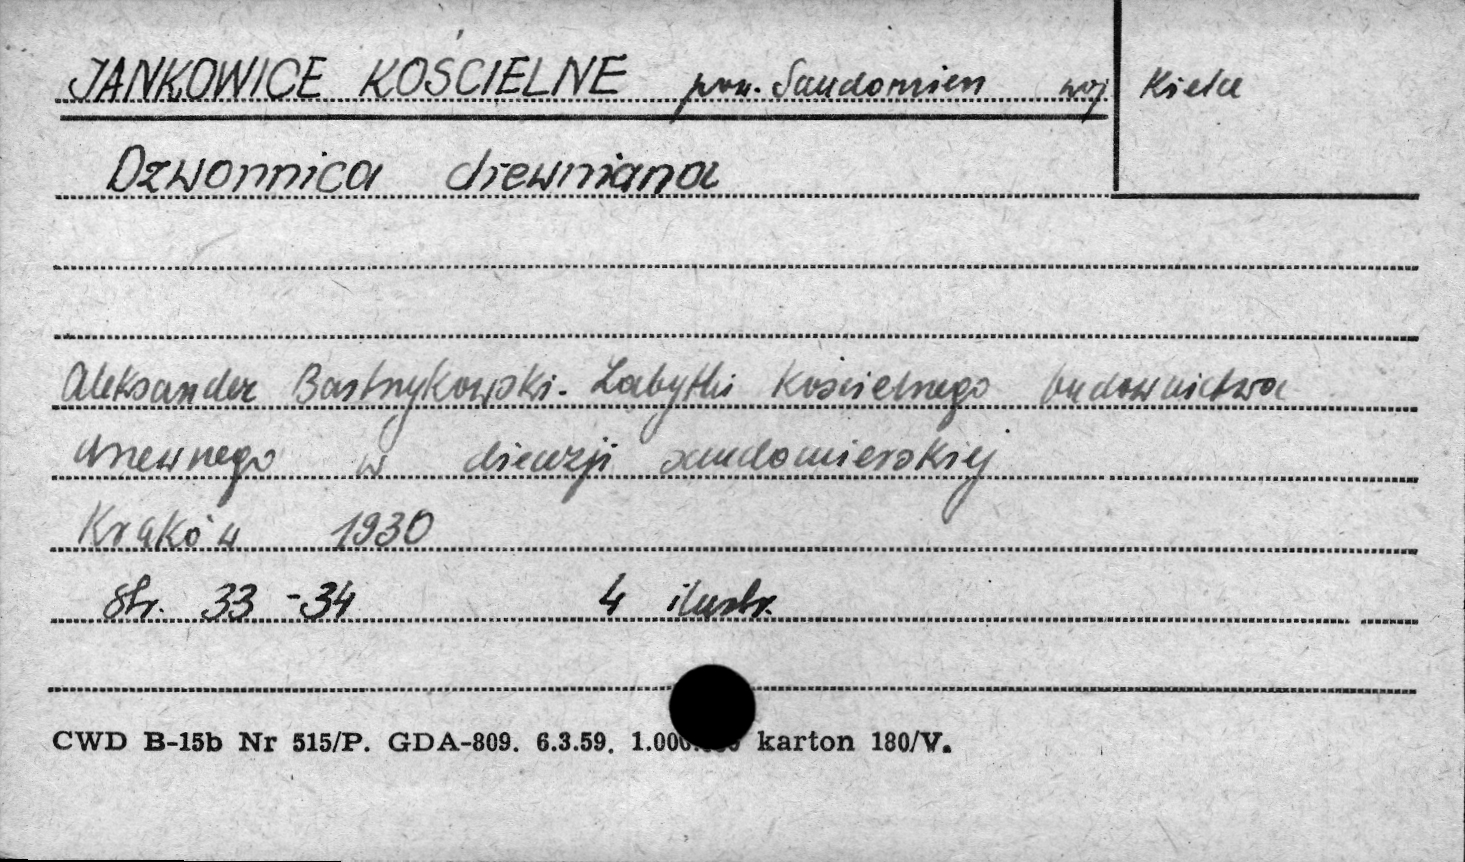 JANKOWICE KOŚCIELNE pow. Sandomierz woj Kielce
Dzwonnica drewniana
Aleksander Bastrzykowski - Zabytki kościelnego budownictwa
drzewnego w diecezji sandomierskiej
Kraków 1930
str. 33-34 4 ilustr.
CWD B-15b Nr 515/P. GDA-809. 6.3.59. 1.000.000 karton 180/V.